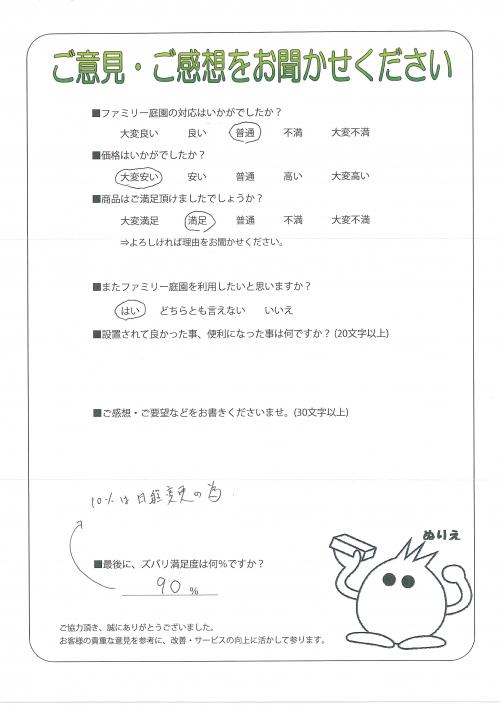 ご意見・ご感想をお聞かせください
■ファミリー庭園の対応はいかがでしたか?
大変良い 良い 普通 不満 大変不満
■価格はいかがでしたか?
大変安い 安い 普通 高い 大変高い
■商品はご満足頂けましたでしょうか?
大変満足 満足 普通 不満 大変不満
⇒よろしければ理由をお聞かせください。
■またファミリー庭園を利用したいと思いますか?
はい どちらとも言えない いいえ
■設置されて良かった事、便利になった事は何ですか? (20文字以上)
■ご感想・ご要望などをお書きくださいませ。(30文字以上)
10%は日程変更の為.
ぬりえ
■最後に、ズバリ満足度は何%ですか?
90 %
ご協力頂き、誠にありがとうございました。
お客様の貴重な意見を参考に、改善・サービスの向上に活かして参ります。